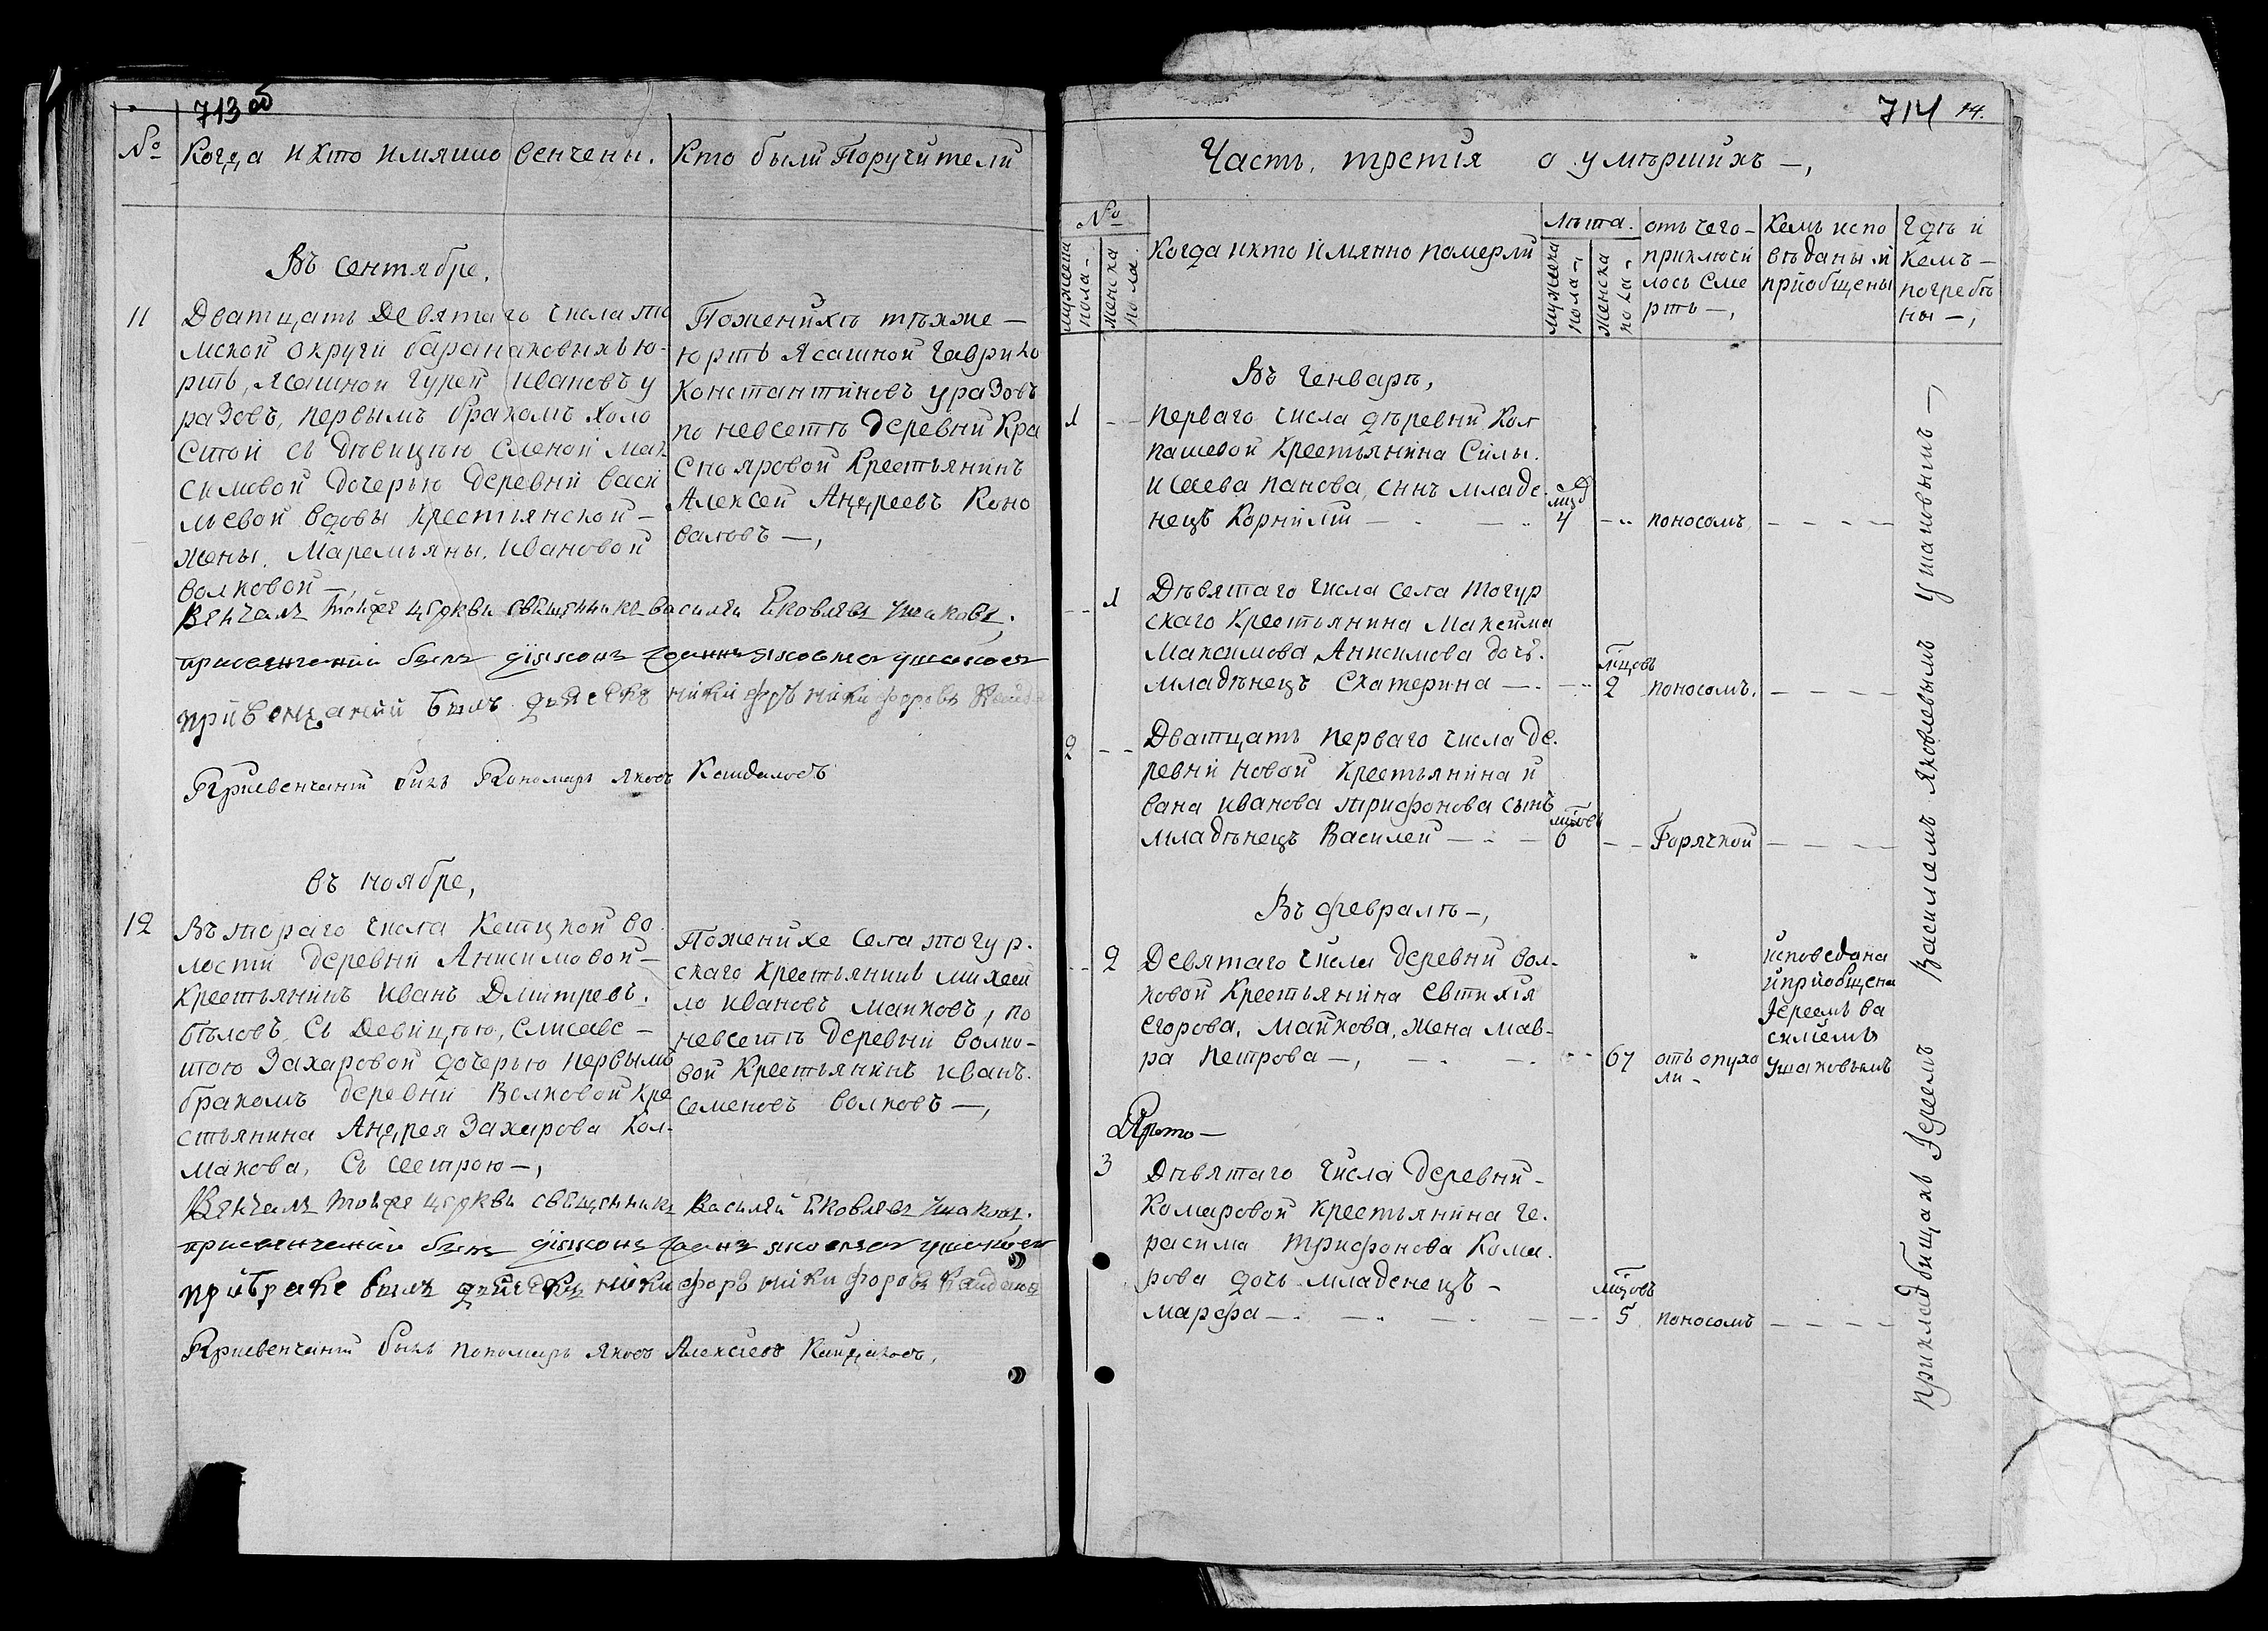 713 об
№ Когда и кто имянно венчены. Кто были Поручители
Въ сентябре,
11 Дватцать Девятаго числа то
мской округи баранаковыхъ ю-
ртъ, Ясашной Гурей Ивановъ у
разовъ, первымъ бракомъ холо
стой съ девицею Еленой Мак
симовой дочерью деревни васи
льевой вдовы крестьянской —
жены, Маремьяны, Ивановой
волковой —
Поженихѣ тѣхже —
юртъ Ясашной Гаврило
Константиновъ уразовъ
по невестѣ деревни Кра
снояровой Крестьянинъ
Алексей Андреевъ Коно
валовъ —,
Венчалъ тойже церкви священникъ василей Яковлевъ Ушаковъ.
привенчании былъ дїяконъ Иоаннъ яковлевъ ушаковъ
привенчании былъ дьячекъ никифоръ никифоровъ
Привенчании былъ Пономарь яковъ Кайдаловъ
въ ноябре,
12 Въттораго числа Кетцкой во
лости деревни Анисимовой —
Крестьянинъ Иванъ Дмитревъ.
бѣловъ, съ Девицею, Елисаве —
тою Захаровой дочерью первымъ
бракомъ деревни Волковой Кре
стьянина Андрея Захарова Кол-
макова, съ сестрою —,
Поженихе села тогур-
скаго Крестьянинъ Михай
ло Ивановъ майковъ, по
невестѣ деревни волко-
вой Крестьянинъ Иванъ.
Семеновъ волковъ —,
Венчалъ тойже церкви священникъ Василей Яковлевъ Ушаковъ.
привенчании былъ дїяконъ Иоаннъ яковлевъ ушаковъ
прибраке былъ дьячекъ никифоръ никифоровъ Кайдаловъ
Привенчании былъ пономарь яковъ Алексеевъ Кайдаловъ,
714 14.
Часть, третїя о умѣршихъ —,
№ мужеска пола — женска пола.
Когда икто имянно померли
лѣта. мужеска пола —, женска пола —,
отъ чего —
приключи
лось сме
рть —,
Кемъ испо
вѣданы и
прїобщены
Гдѣ и
кемъ —
погребѣ
ны —,
Въ Генварѣ,
1 — — Перваго числа дѣревни Кол
пашевой Крестьянина Силы.
Исаева панова, синъ младе-
нецъ Корнилій — 4 — поносомъ, — — — —
— — 1 Дѣвятаго числа села тогур
скаго Крестьянина Максима
Максимова Анисимова дочь.
младѣнецъ Екатерина — мцовъ 2 поносомъ. — — — —
2 — — Дватцать перваго числа де-
ревни новой Крестьянина и
вана иванова трифонова сынъ
младѣнецъ Василей — мцовъ 6 — — Горячкой — — — —
Въ февралѣ —,
— — 2 Девятаго числа деревни вол-
ковой Крестьянина Евтихїя
егорова, майкова, жена мав-
ра петрова —, — — 67 отъ опухо
ли —
исповедана
иприобщена
Іереемъ ва
силїемъ
Ушаковымъ
3 Дѣвятаго числа деревни —
Комаровой крестьянина ге-
расима трифонова кома-
рова дочь младенецъ —
марфа — мцовъ 5 поносомъ — — — —
прикладбищахъ Іереемъ Василїемъ Яковлевымъ Ушаковымъ —